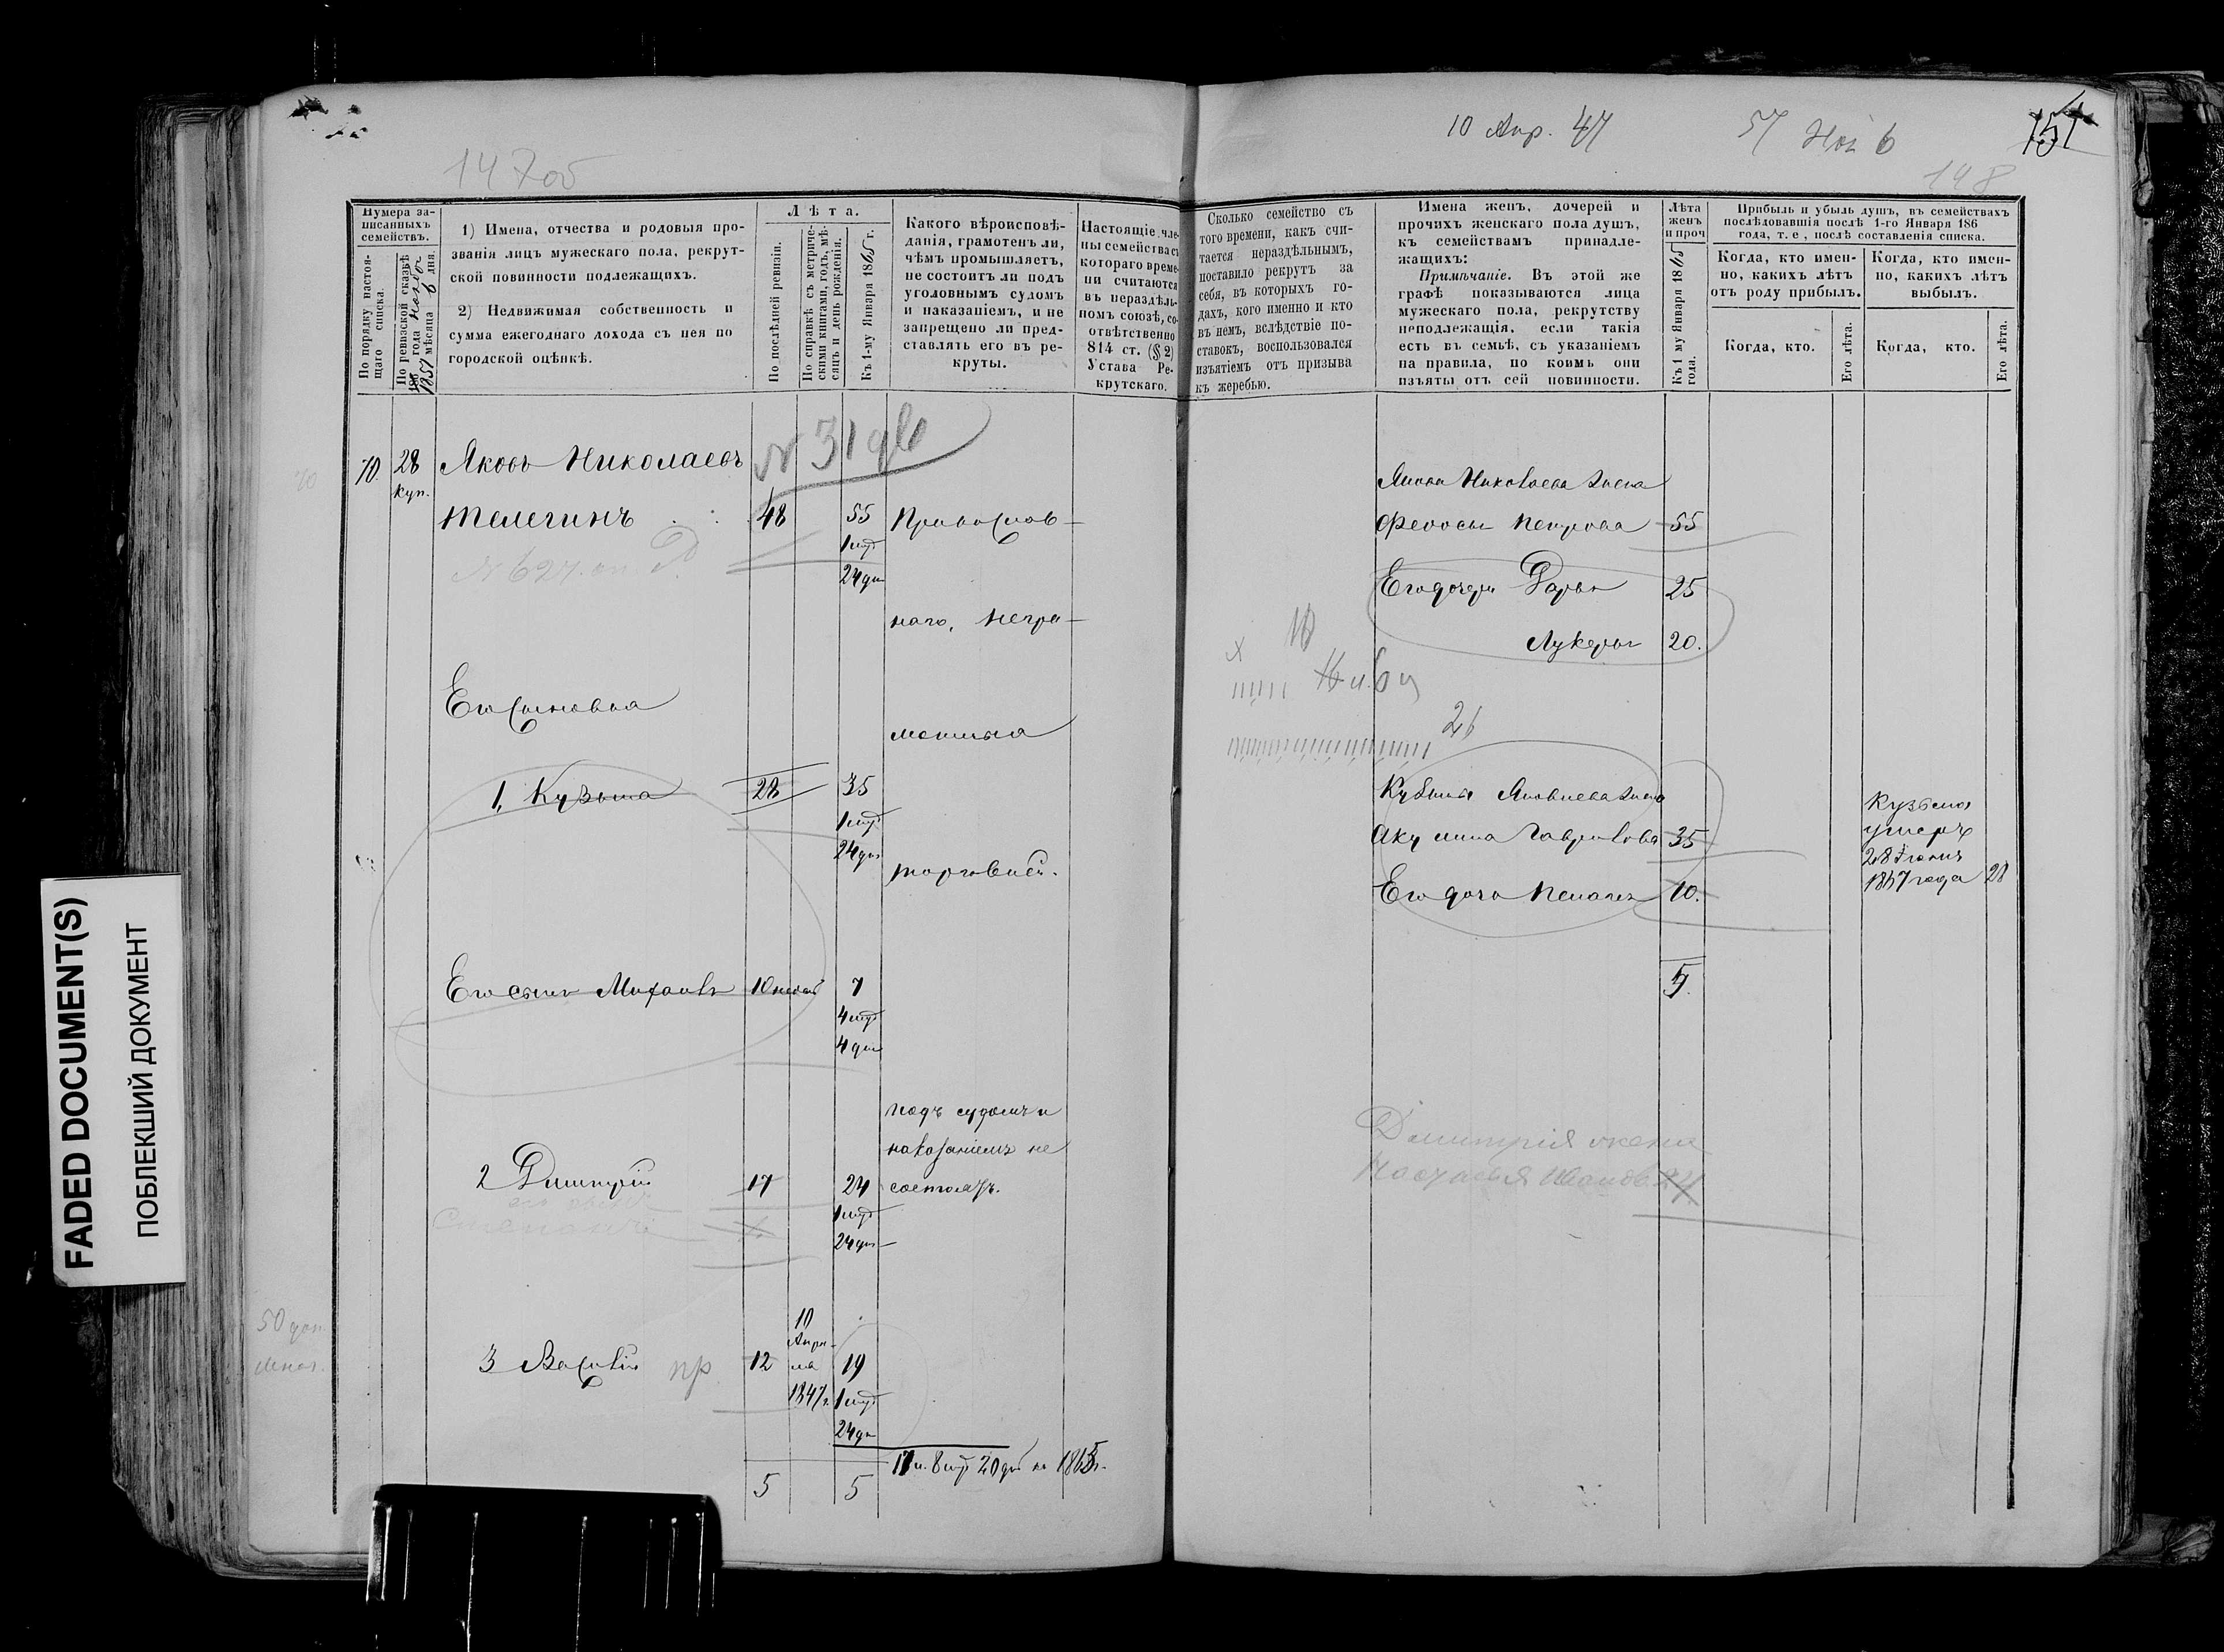 147 об
10 Апр. 47
57 Ноя 6
151
148
Нумера за-
писанныхъ
семействъ.
По порядку настоя-
щаго списка.
По ревизской сказкѣ
186 года
1857 мѣсяца 6 дня.
1) Имена, отчества и родовыя про-
званія лицъ мужескаго пола, рекрут-
ской повинности подлежащихъ.
2) Недвижимая собственность и
сумма ежегоднаго дохода съ нея по
городской оцѣнкѣ.
Лѣта.
По послѣдней ревизіи.
По справкѣ съ метриче-
скими книгами, годъ, мѣ-
сяцъ и день рожденія.
Къ 1-му Января 1865 г.
Какого вѣроисповѣ-
данія, грамотенъ ли,
чѣмъ промышляетъ,
не состоитъ ли подъ
уголовнымъ судомъ
и наказаніемъ, и не
запрещено ли пред-
ставлять его въ ре-
круты.
Настоящіе чле-
ны семейства съ
котораго време-
ни считаются
въ нераздѣль-
помъ союзѣ, со-
отвѣтственно
814 ст. (§ 2)
Устава Ре-
крутскаго.
Сколько семейство съ
того времени, какъ счи-
тается нераздѣльнымъ,
поставило рекрутъ за
себя, въ которыхъ го-
дахъ, кого именно и кто
въ немъ, вслѣдствіе по-
ставокъ, воспользовался
изъятіемъ отъ призыва
къ жеребью.
Имена женъ, дочерей и
прочихъ женскаго пола душъ,
къ семействамъ принадле-
жащихъ:
Примѣчаніе. Въ этой же
графѣ показываются лица
мужескаго пола, рекрутству
неподлежащія, если такія
есть въ семьѣ, съ указаніемъ
на правила, по коимъ они
изъяты отъ сей повинности.
Лѣта
женъ
и проч
Къ 1 му Января 1865
года.
Прибыль и убыль душъ, въ семействахъ
послѣдовавшія послѣ 1-го Января 186
года, т. е., послѣ составленія списка.
Когда, кто имен-
но, какихъ лѣтъ
отъ роду прибылъ.
Когда, кто имен-
но, какихъ лѣтъ
выбылъ.
Когда, кто.
Его лѣта.
Когда, кто.
Его лѣта.
70
70. 28 Яковъ Николаевъ
куп.
N 31
Телегинъ 48 55 Православ-
1 мѣс
24 дн
наго, негра-
мотныя
торговлей.
Его сыновья
1, Кузьма 28 35
1 мѣс
24 дн
Его сынъ Михаилъ 10 недѣль 7
4 мѣс
4 дня
подъ судомъ и
наказаніемъ не
состоятъ.
2 Дмитрій 17 24
1 мѣс
24 дн
50 доп.
3 Василій пр. 12 19
10
Апрѣ-
ля
1847 г.
1 мѣс
24 дн
17 л. 8 мѣс 20 дн на 1865 г.
5 5
Якова Николаева жена
Федосья Петрова 55
Его дочери Дарья 25
Лукерья 20.
26
Кузьмы Яковлева жена
Акулина Гаврилова 35
Его дочь Пелагея 10.
5
Дмитрія жена
Настасья Иванов 24
Кузьма
умеръ
28 Іюня
1857 года 28
FADED DOCUMENT(S)
ПОБЛЕКШИЙ ДОКУМЕНТ